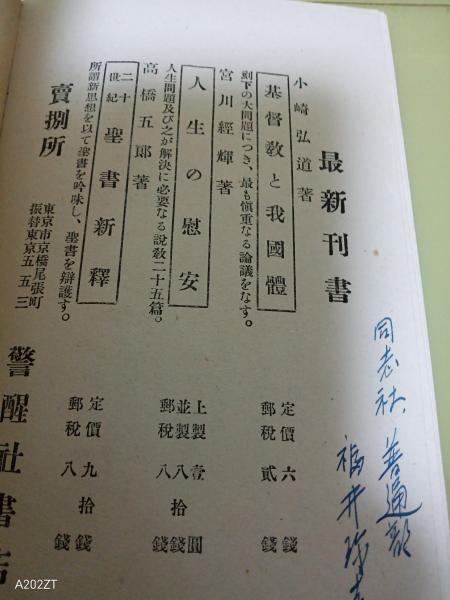 最新刊書
小崎弘道著
基督教と我國體
定價六錢
郵稅貳錢
刻下の大問題につき、最も愼重なる論議をなす。
宮川經輝著
人生の慰安
上製壹圓
並製八拾錢
郵稅八錢
人生問題及び之が解決に必要なる說教二十五篇。
高橋五郞著
二十世紀聖書新釋
定價九拾錢
郵稅八錢
所謂新思想を以て聖書を吟味し、聖書を辯護す。
賣捌所
東京市京橋尾張町
振替東京五五三
警醒社書店
同志社、普通部
福井
A202ZT